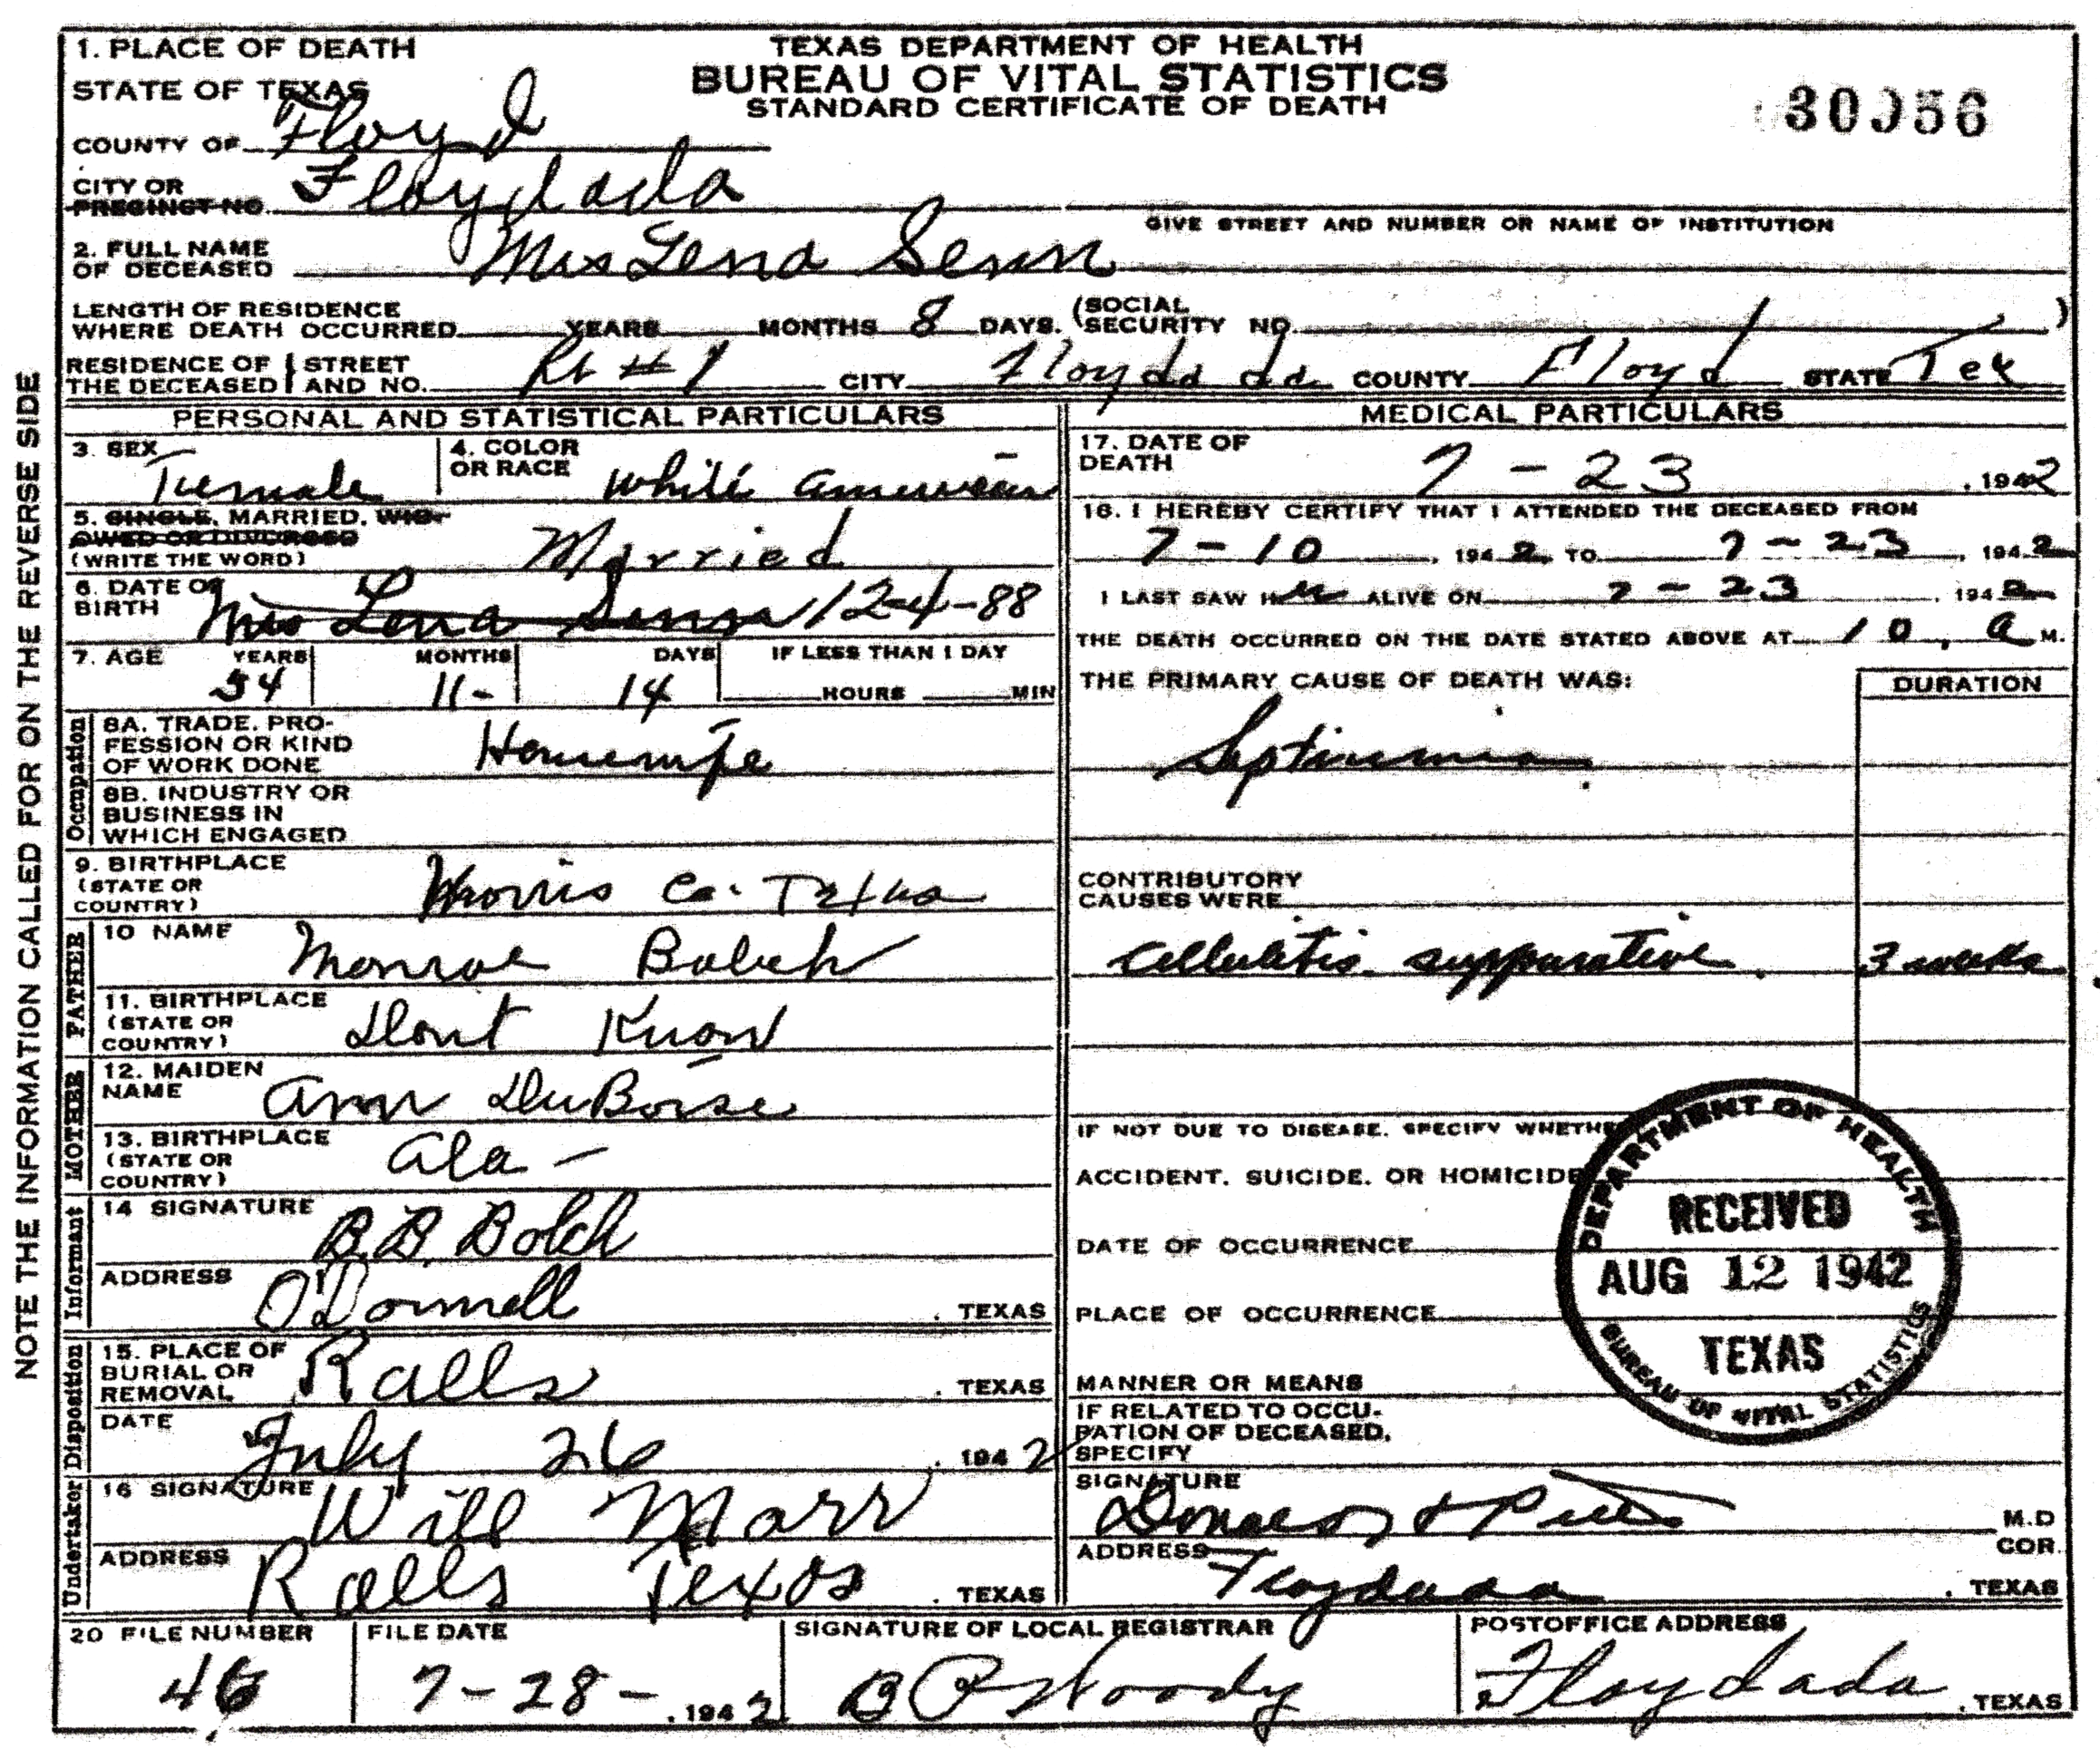 1. PLACE OF DEATH
TEXAS DEPARTMENT OF HEALTH
BUREAU OF VITAL STATISTICS
STANDARD CERTIFICATE OF DEATH
30056
STATE OF TEXAS
COUNTY OF Floyd
CITY OR PRECINCT NO. Floydada
GIVE STREET AND NUMBER OR NAME OF INSTITUTION
2. FULL NAME OF DECEASED Mrs Lena Senn
LENGTH OF RESIDENCE WHERE DEATH OCCURRED YEARS MONTHS 8 DAYS. (SOCIAL SECURITY NO. )
RESIDENCE OF THE DECEASED STREET AND NO. Rt #1 CITY Floydada COUNTY Floyd STATE Tex
NOTE THE INFORMATION CALLED FOR ON THE REVERSE SIDE
PERSONAL AND STATISTICAL PARTICULARS
3. SEX Female
4. COLOR OR RACE White American
5. SINGLE, MARRIED, WIDOWED OR DIVORCED (WRITE THE WORD) Married
6. DATE OF BIRTH Mrs Lena Senn 12-4-88
7. AGE YEARS 54 MONTHS 11- DAYS 14 IF LESS THAN 1 DAY HOURS MIN
Occupation
8A. TRADE, PROFESSION OR KIND OF WORK DONE Housewife
8B. INDUSTRY OR BUSINESS IN WHICH ENGAGED
9. BIRTHPLACE (STATE OR COUNTRY) Morris Co. Texas
FATHER
10 NAME Monroe Bolch
11. BIRTHPLACE (STATE OR COUNTRY) Dont Know
MOTHER
12. MAIDEN NAME Ann DuBoise
13. BIRTHPLACE (STATE OR COUNTRY) Ala -
Informant
14 SIGNATURE B.B. Bolch
ADDRESS O'Donnell, TEXAS
Disposition
15. PLACE OF BURIAL OR REMOVAL Ralls, TEXAS
DATE July 26, 1942
Undertaker
16 SIGNATURE Will Marr
ADDRESS Ralls Texas, TEXAS
MEDICAL PARTICULARS
17. DATE OF DEATH 7-23, 1942
18. I HEREBY CERTIFY THAT I ATTENDED THE DECEASED FROM
7-10, 1942 TO 7-23, 1942
I LAST SAW H er ALIVE ON 7-23, 1942
THE DEATH OCCURRED ON THE DATE STATED ABOVE AT 10, a M.
THE PRIMARY CAUSE OF DEATH WAS: DURATION
CONTRIBUTORY CAUSES WERE
Cellulitis suppurative 3 weeks
IF NOT DUE TO DISEASE, SPECIFY WHETHER
ACCIDENT, SUICIDE, OR HOMICIDE
DATE OF OCCURRENCE
PLACE OF OCCURRENCE
MANNER OR MEANS
IF RELATED TO OCCUPATION OF DECEASED, SPECIFY
DEPARTMENT OF HEALTH
RECEIVED
AUG 12 1942
TEXAS
BUREAU OF VITAL STATISTICS
SIGNATURE M.D
COR.
ADDRESS Floydada, TEXAS
20 FILE NUMBER 46
FILE DATE 7-28-, 1942
SIGNATURE OF LOCAL REGISTRAR B P Woody
POSTOFFICE ADDRESS Floydada, TEXAS